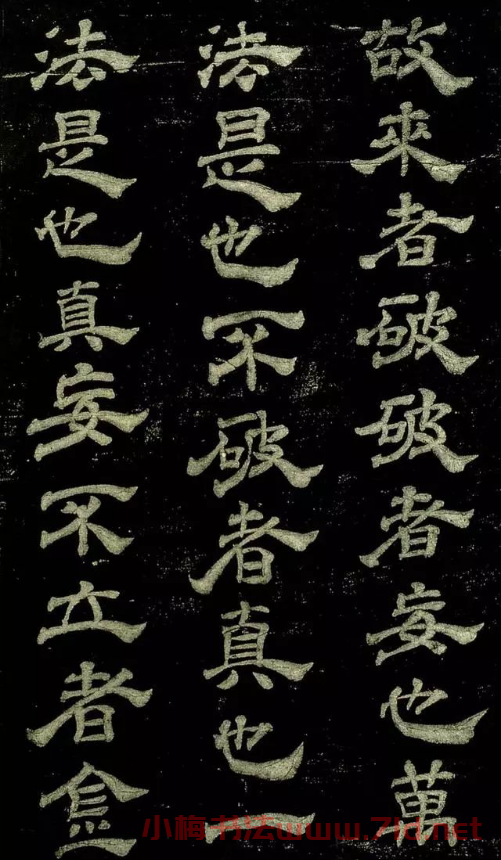 故來者破破者妄也萬
法是也不破者真也一
法是也真妄不立者㑒
小梅书法www.7ld.net